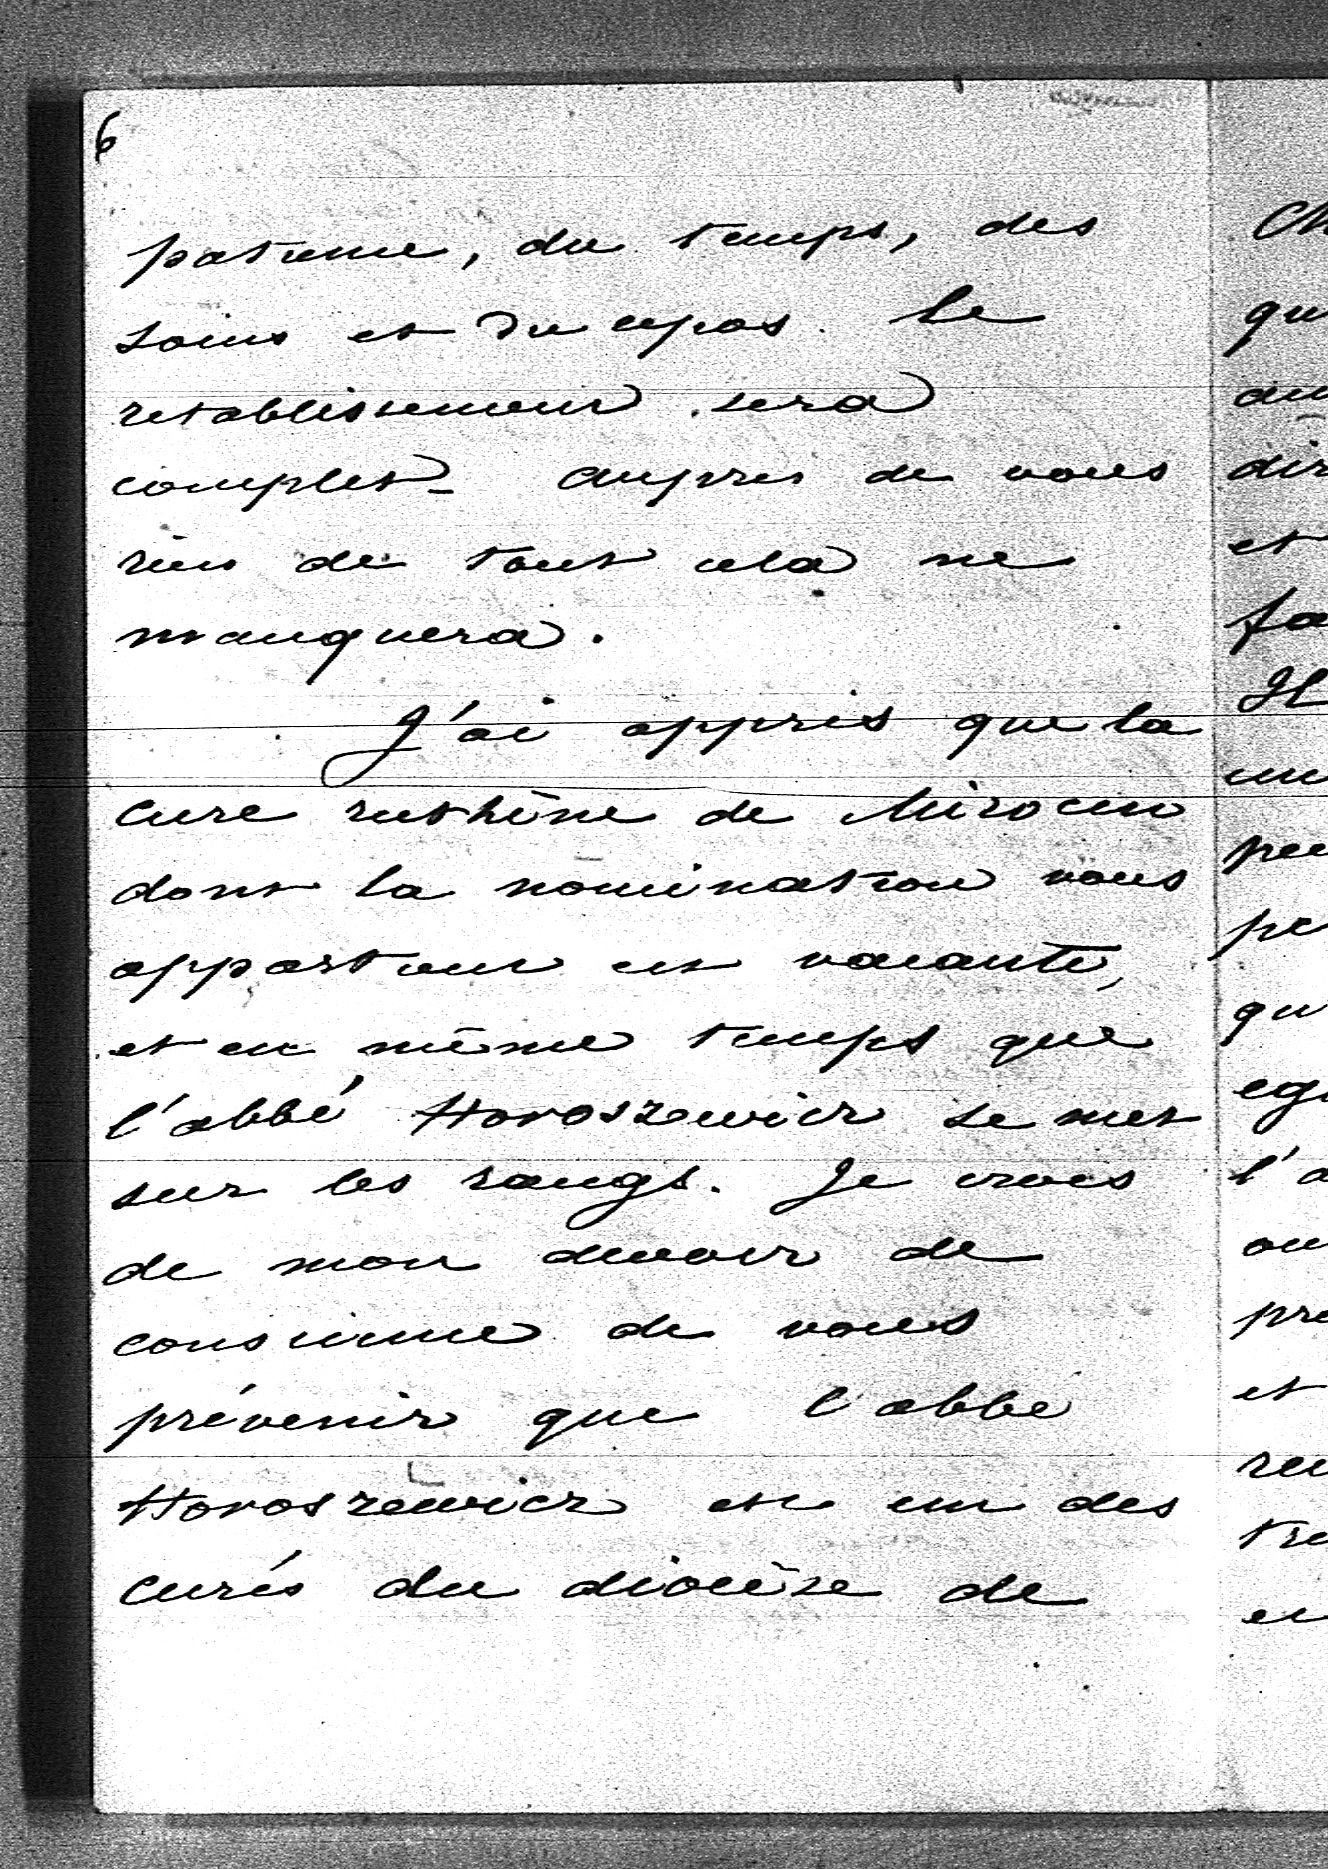 6
patience, du temps, des
soins et du repos. Le
retablissement sera
complet – Aupres de vous
rien de tout cela ne
manquera.
J'ai appris que la
cure ruthène de Mirocin
dont la nomination vous
appartient est vacante,
et en même temps que
l'abbé Horoszewicz se met
sur les rangs. Je crois
de mon devoir de
conscience de vous
prévenir que l'abbé
Horoszewicz est un des
curés du diocèse de
Ch
qu
au
dir
et
fa
Il
un
peu
pe
qu
egl
l'a
ou
pre
et
ren
tre
en